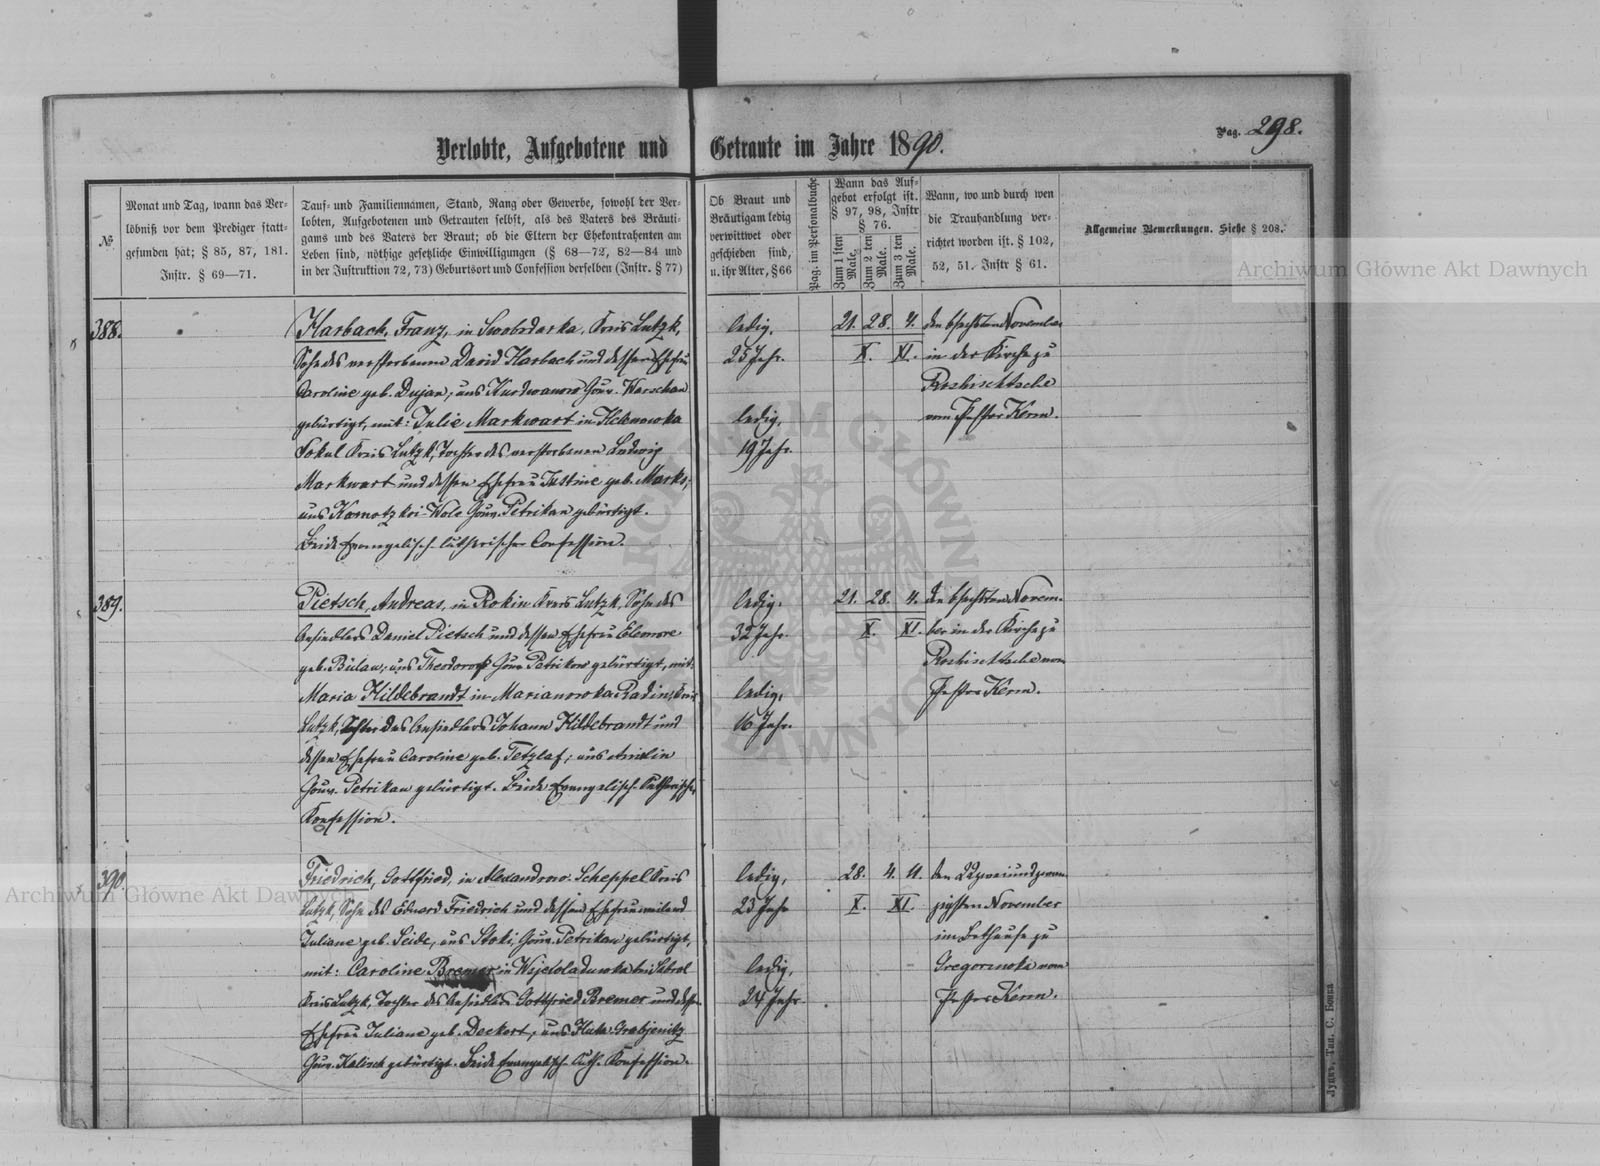 Verlobte, Aufgebotene und Getraute im Jahre 1890.
Pag. 298.
№
Monat und Tag, wann das Ver-
löbniß vor dem Prediger statt-
gefunden hat; § 85, 87, 181.
Instr. § 69—71.
Tauf- und Familiennamen, Stand, Rang oder Gewerbe, sowohl der Ver-
lobten, Aufgebotenen und Getrauten selbst, als des Vaters des Bräuti-
gams und des Vaters der Braut; ob die Eltern der Ehekontrahenten am
Leben sind, nöthige gesetzliche Einwilligungen (§ 68—72, 82—84 und
in der Instruktion 72, 73) Geburtsort und Confession derselben (Instr. § 77)
Ob Braut und
Bräutigam ledig
verwittwet oder
geschieden sind,
u. ihr Alter, § 66
Pag. im Personalbuche
Wann das Auf-
gebot erfolgt ist.
§ 97, 98, Instr
§ 76.
Zum 1 sten Male.
Zum 2 ten Male.
Zum 3 ten Male.
Wann, wo und durch wen
die Trauhandlung ver-
richtet worden ist. § 102,
52, 51. Instr § 61.
Allgemeine Bemerkungen. Siehe § 208.
388.
Harbach, Franz, in Swobodarka, Kreis Lutzk,
Sohn des verstorbenen David Harbach und dessen Ehefrau
Caroline geb. Dujan, aus Kurdwanow Gouv. Warschau
gebürtigt, mit: Julie Markwart in Helenowka
Sokul Kreis Lutzk, Tochter des verstorbenen Ludwig
Markwart und dessen Ehefrau Justine geb. Marks,
aus Komotzkoi-Wole Gouv. Petrikau gebürtigt.
Beide Evangelisch-lutherischer Confession.
ledig,
25 Jahr.
ledig,
19 Jahr.
21. 28. 4.
X. XI.
den 6 sechsten November
in der Kirche zu
Roshischtsche
vom Pastor Kerm.
389.
Pietsch, Andreas, in Rokin Kreis Lutzk, Sohn des
Ansiedlers Daniel Pietsch und dessen Ehefrau Eleonore
geb. Bülau, aus Theodorow Gouv. Petrikow gebürtigt, mit:
Maria Hildebrandt in Marianowka Radin, Kreis
Lutzk, Tochter des Ansiedlers Johann Hildebrandt und
dessen Ehefrau Caroline geb. Tetzlaf; aus Amelin
Gouv. Petrikau gebürtigt. Beide Evangelisch-Lutherischer
Konfession.
ledig.
32 Jahr.
ledig,
16 Jahr.
21. 28. 4.
X. XI.
den 6 sechsten Novem-
ber in der Kirche zu
Roshischtsche vom
Pastor Kerm.
390.
Friedrich, Gottfried, in Alexandrow-Scheppel Kreis
Lutzk, Sohn des Eduard Friedrich und dessen Ehefrau weiland
Juliane geb. Seide, aus Stoki, Gouv. Petrikau gebürtigt,
mit: Caroline Bremer in Wijetoladuwka bei Sabrol
Kreis Lutzk, Tochter des Ansiedlers Gottfried Bremer und dessen
Ehefrau Juliane geb. Deckert, aus Huta-Grabjenitz
Gouv. Kalisch gebürtigt. Beide Evangelisch-Luth. Konfession.
ledig,
23 Jahr
ledig,
24 Jahr
28. 4. 11.
X. XI.
den 22 zweiundzwan-
zigsten November
im Bethause zu
Gregorewka vom
Pastor Kerm.
Луцкъ, Тип. С. Бокса
Archiwum Główne Akt Dawnych
Archiwum Główne Akt Dawnych
ARCHIWUM GŁÓWNE AKT DAWNYCH